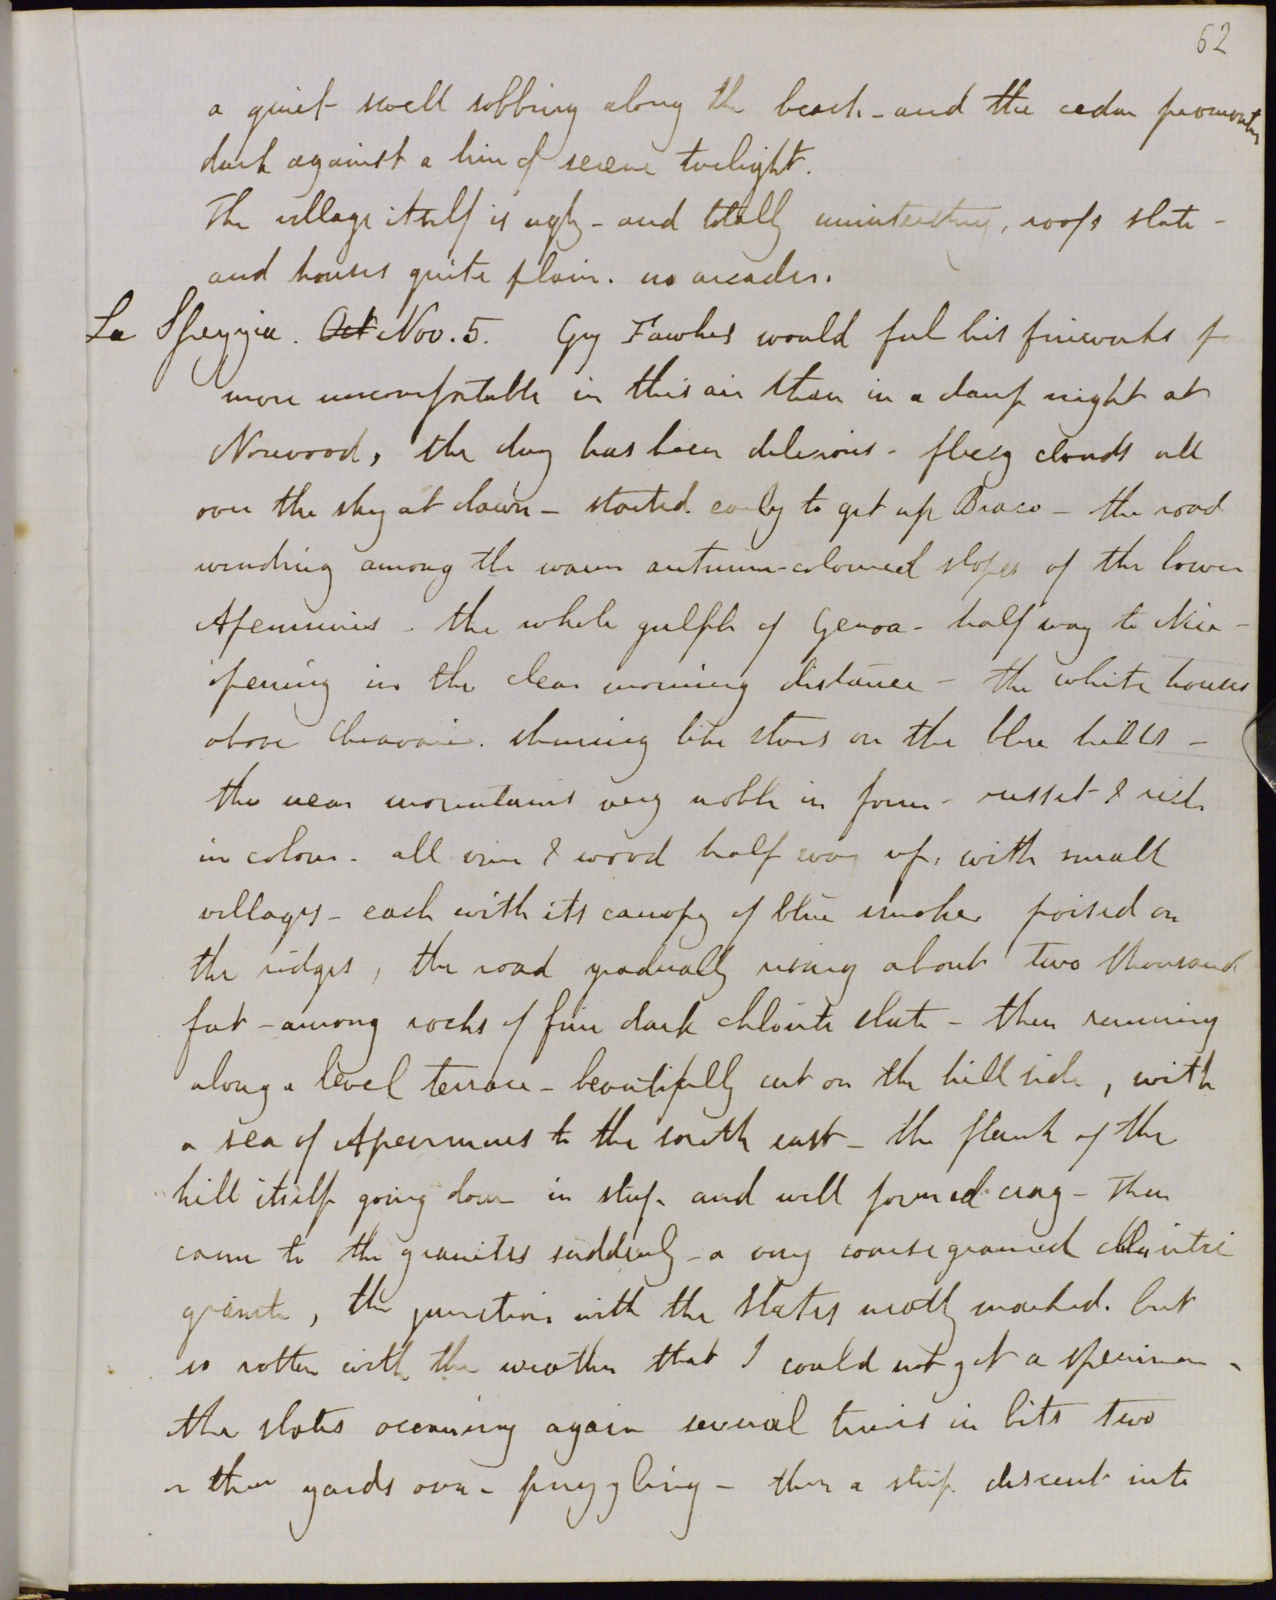 62
a quiet swell sobbing along the beach - and the cedar promontory
dark against a line of serene twilight.
The village itself is ugly - and totally uninteresting, roofs slate -
and houses quite plain. no arcades.
La Spezzia. Oct Nov. 5. Guy Fawkes would feel his fireworks far
more uncomfortable in this air than in a damp night at
Norwood, the day has been delicious - fleecy clouds all
over the sky at dawn - started early to get up Braco - the road
winding among the warm autumn-coloured slopes of the lower
Apennines - the whole gulph of Genoa - half way to Nice -
opening in the clear morning distance - the white houses
above Chiavari. shining like stars on the blue hills -
the near mountains very noble in form - russet & rich
in colour - all vine & wood half way up, with small
villages - each with its canopy of blue smoke poised on
the ridges, the road gradually rising about two thousand
feet - among rocks of fine dark chlorite slate - then running
along a level terrace - beautifully cut on the hill side, with
a sea of Apennines to the south east - the flank of the
hill itself going down in steep and well formed crag - Then
came to the granites suddenly - a very coarse grained chloritic
granite, the junction with the slates neatly marked. but
so rotten with the weather that I could not get a specimen -
the slates occurring again several times in bits two
or three yards over - puzzling - then a steep descent into